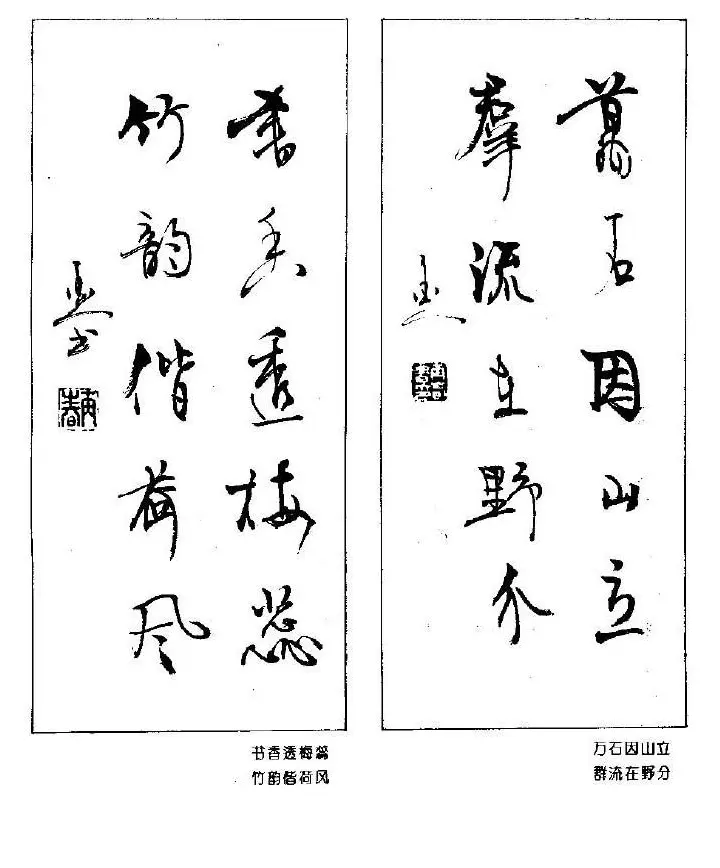 萬石因山立
羣流在野分
書香透梅蕊
竹韵偕荷风
万石因山立
群流在野分
书香透梅蕊
竹韵偕荷风